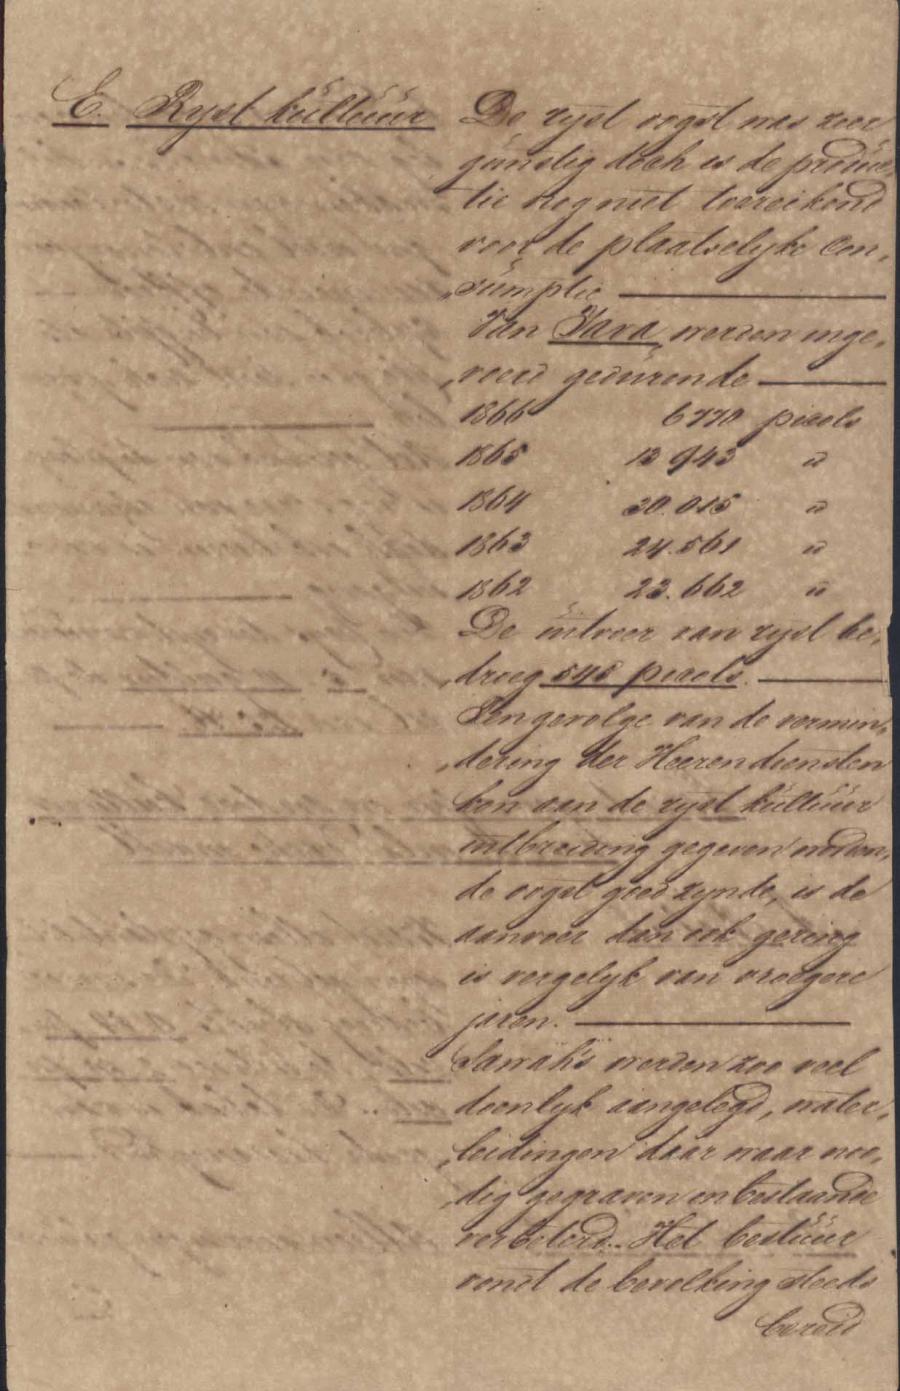 E. Ryst kultuur
De ryst oogst was zeer
gunstig doch is de produc„
tie nog niet toereikend
voor de plaatselyke con„
„sumptie
Van Java werden inge„
„voerd gedurende
1866 6770 picols
1865 12943 "
1864 20.015 "
1863 24.561 "
1862 23.662 "
De uitvoer van ryst be„
„droeg 545 picols.
Ten gevolge van de vermin„
„dering der Heerendiensten
kon aan de ryst kultuur
uitbreiding gegeven worden,
de oogst goed zynde, is de
aanvoer dan ook gering
is vergelyk van vroegere
jaren.
Sawah's werden zoo veel
doenlyk aangelegd, water„
„leidingen daar waar noo„
„dig gegraven en bestaande
verbeterd. Het bestuur
vond de bevolking steeds
bereid